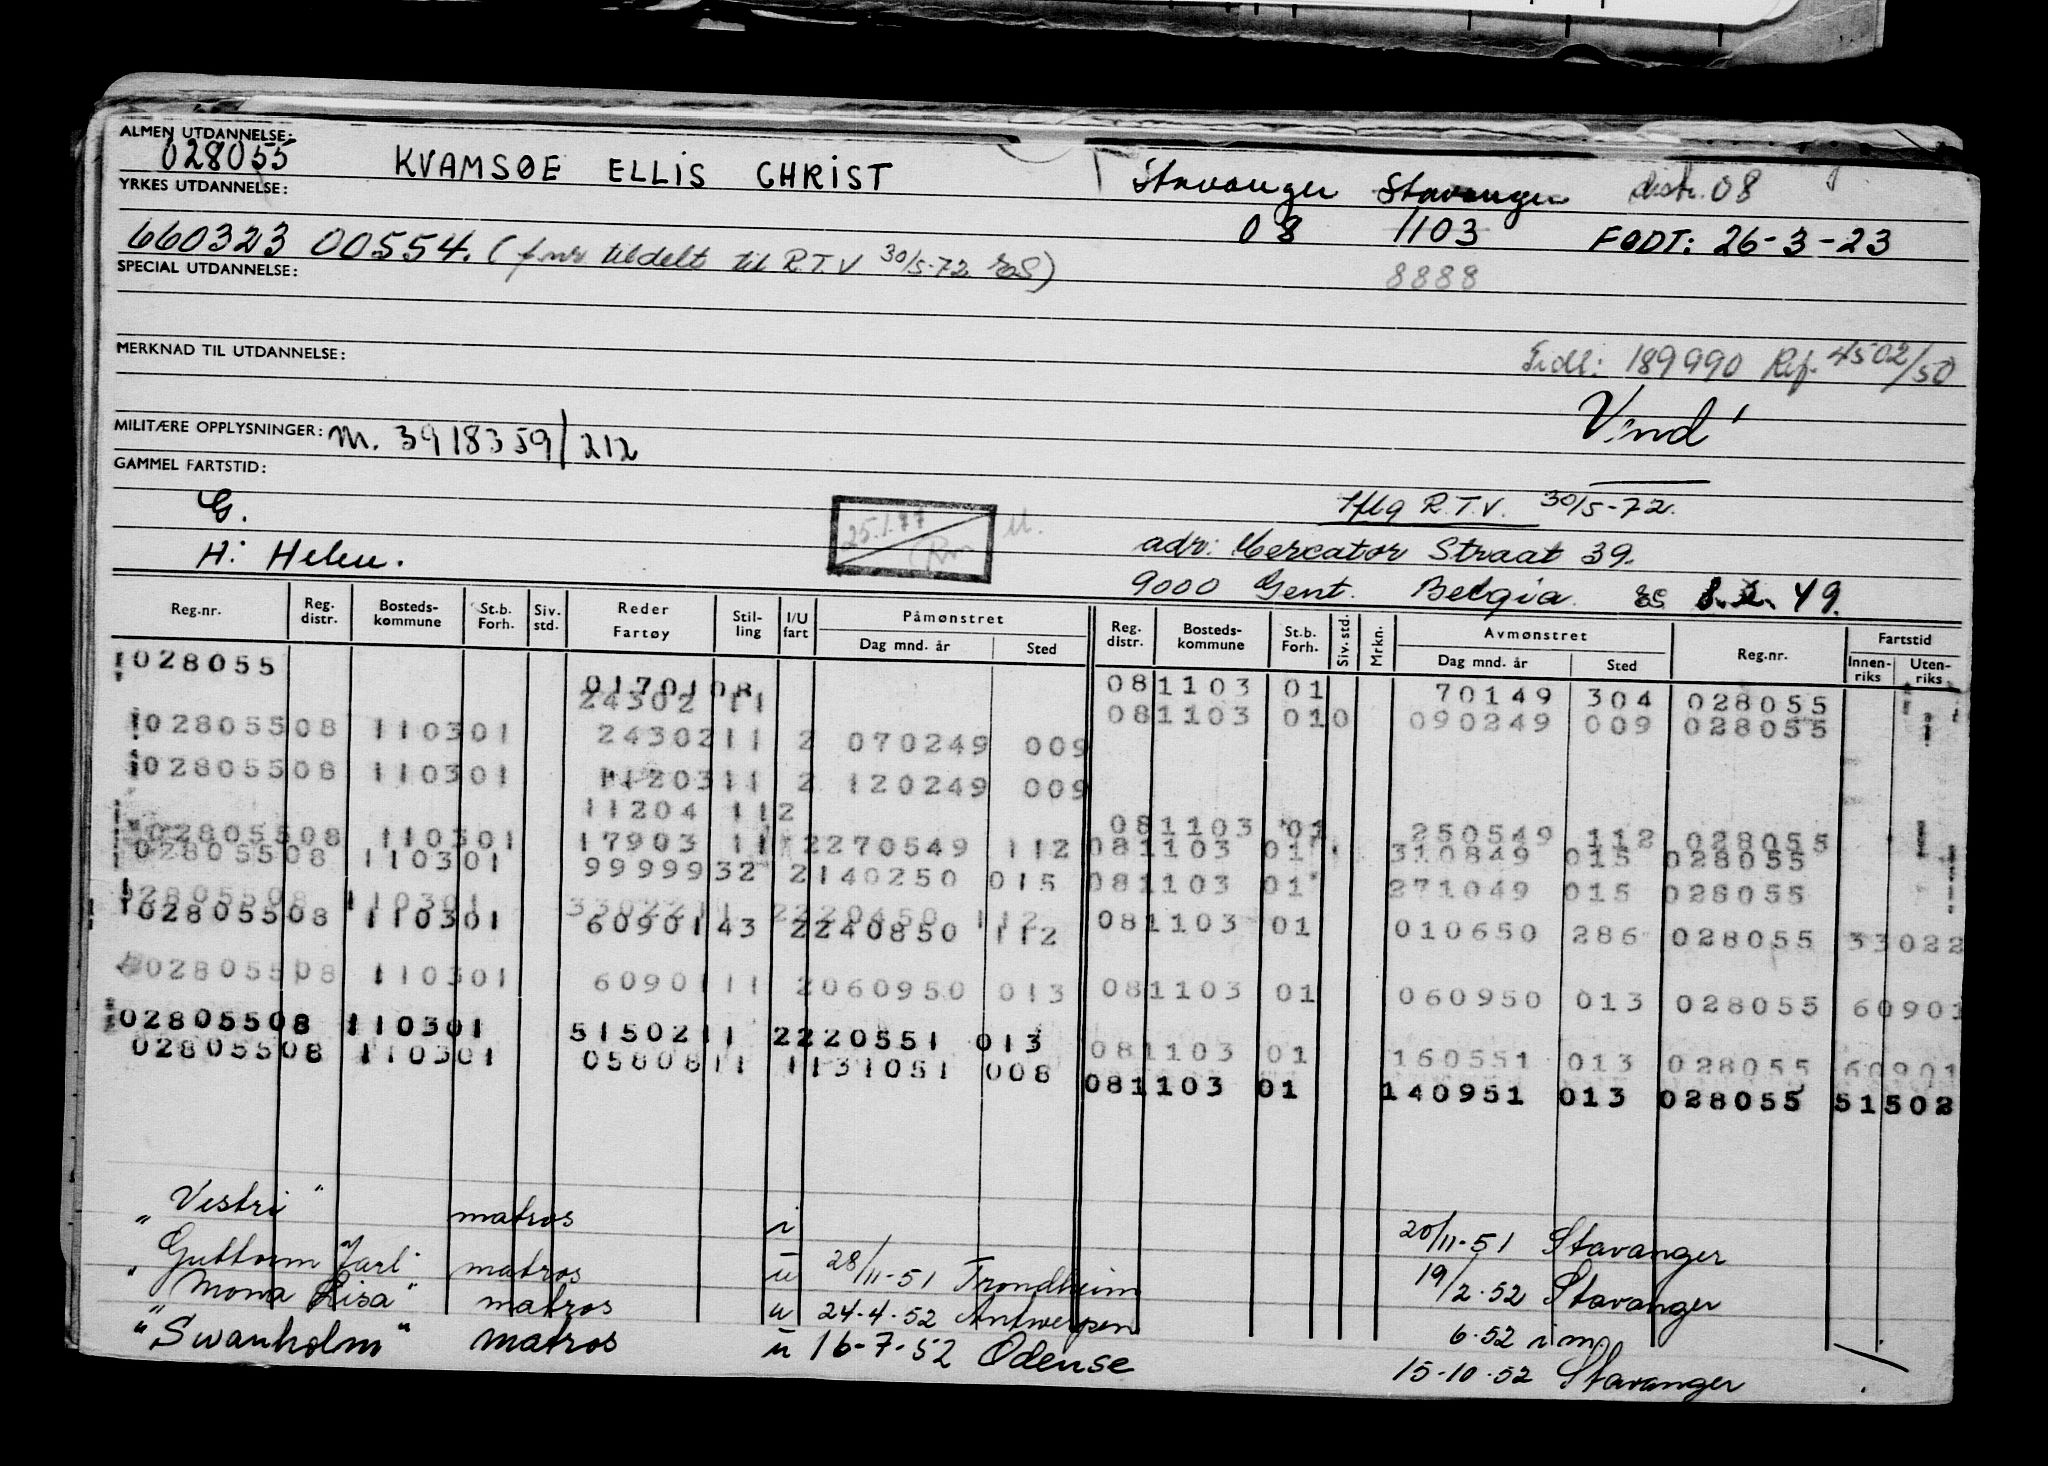 ALMEN UTDANNELSE:
028055 KVAMSØE ELLIS CHRIST Stavanger Stavanger distr. 08
YRKES UTDANNELSE:
08 1103 FØDT: 26-3-23
660323 00554. (f.nr tildelt til R.T.V 30/5-72
8888
SPECIAL UTDANNELSE:
MERKNAD TIL UTDANNELSE:
189990 Ref. 4502/50
Vend
MILITÆRE OPPLYSNINGER: M. 3918359/212
GAMMEL FARTSTID:
G. 25.1.77 R.T.V. 30/5-72.
H: Helen. adr: Mercator Straat 39.
9000 Gent. Belgia. 49.
Reg.nr. Reg. distr. Bosteds-kommune St.b. Forh. Siv. std. Reder Fartøy Stil-ling I/U fart Påmønstret Reg. distr. Bosteds-kommune St.b. Forh. Siv. std. Mrkn. Avmønstret Reg.nr. Fartstid
Dag mnd. år Sted Dag mnd. år Sted Innen-riks Uten-riks
028055 0170108
24302 11 081103 01 70149 304 028055
081103 010 090249 009 028055
02805508 110301 2430211 2 070249 009
02805508 110301 1120311 2 120249 009
11204 112
081103 01 250549 112 028055
02805508 110301 17903 11 2270549 112 081103 01 310849 015 028055
02805508 110301 9999932 2140250 015 081103 01 271049 015 028055
02805508 110301 3302211 2220450 112
02805508 110301 6090143 2240850 112 081103 01 010650 286 028055 33022
02805508 110301 6090111 2060950 013 081103 01 060950 013 028055 60901
02805508 110301 5150211 2220551 013 081103 01 160551 013 028055 60901
02805508 110301 0580811 1131051 008 081103 01 140951 013 028055 51502
"Vestri" matros i 20/11-51 Stavanger
"Guttorm Jarl" matros u 28/11-51 Trondheim 19/2-52 Stavanger
"Mona Lisa" matros u 24-4-52 Antwerpen 6-52 im
"Swanholm" matros u 16-7-52 Odense 15-10-52 Stavanger